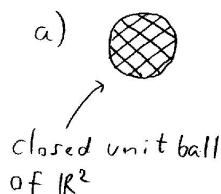 a)
closed unit ball
of ℝ²